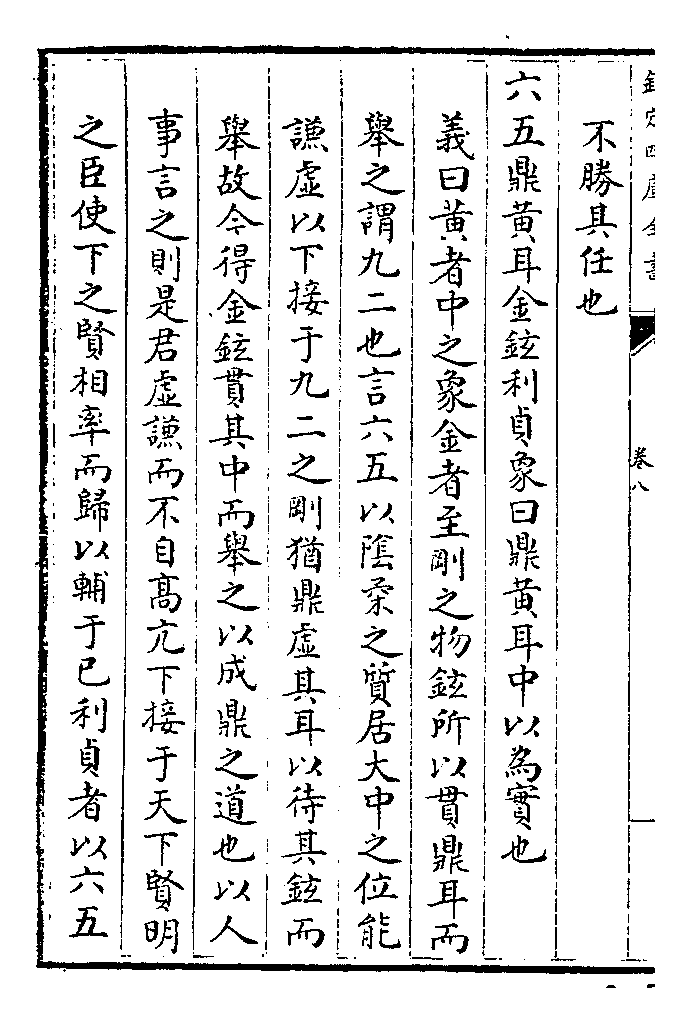 欽定四庫全書
卷八
不勝其任也
六五鼎黄耳金鉉利貞象曰鼎黄耳中以為實也
義曰黄者中之象金者至剛之物鉉所以貫鼎耳而
舉之謂九二也言六五以隂柔之質居大中之位能
謙虚以下接于九二之剛猶鼎虚其耳以待其鉉而
舉故今得金鉉貫其中而舉之以成鼎之道也以人
事言之則是君虚謙而不自髙亢下接于天下賢明
之臣使下之賢相率而歸以輔于已利貞者以六五